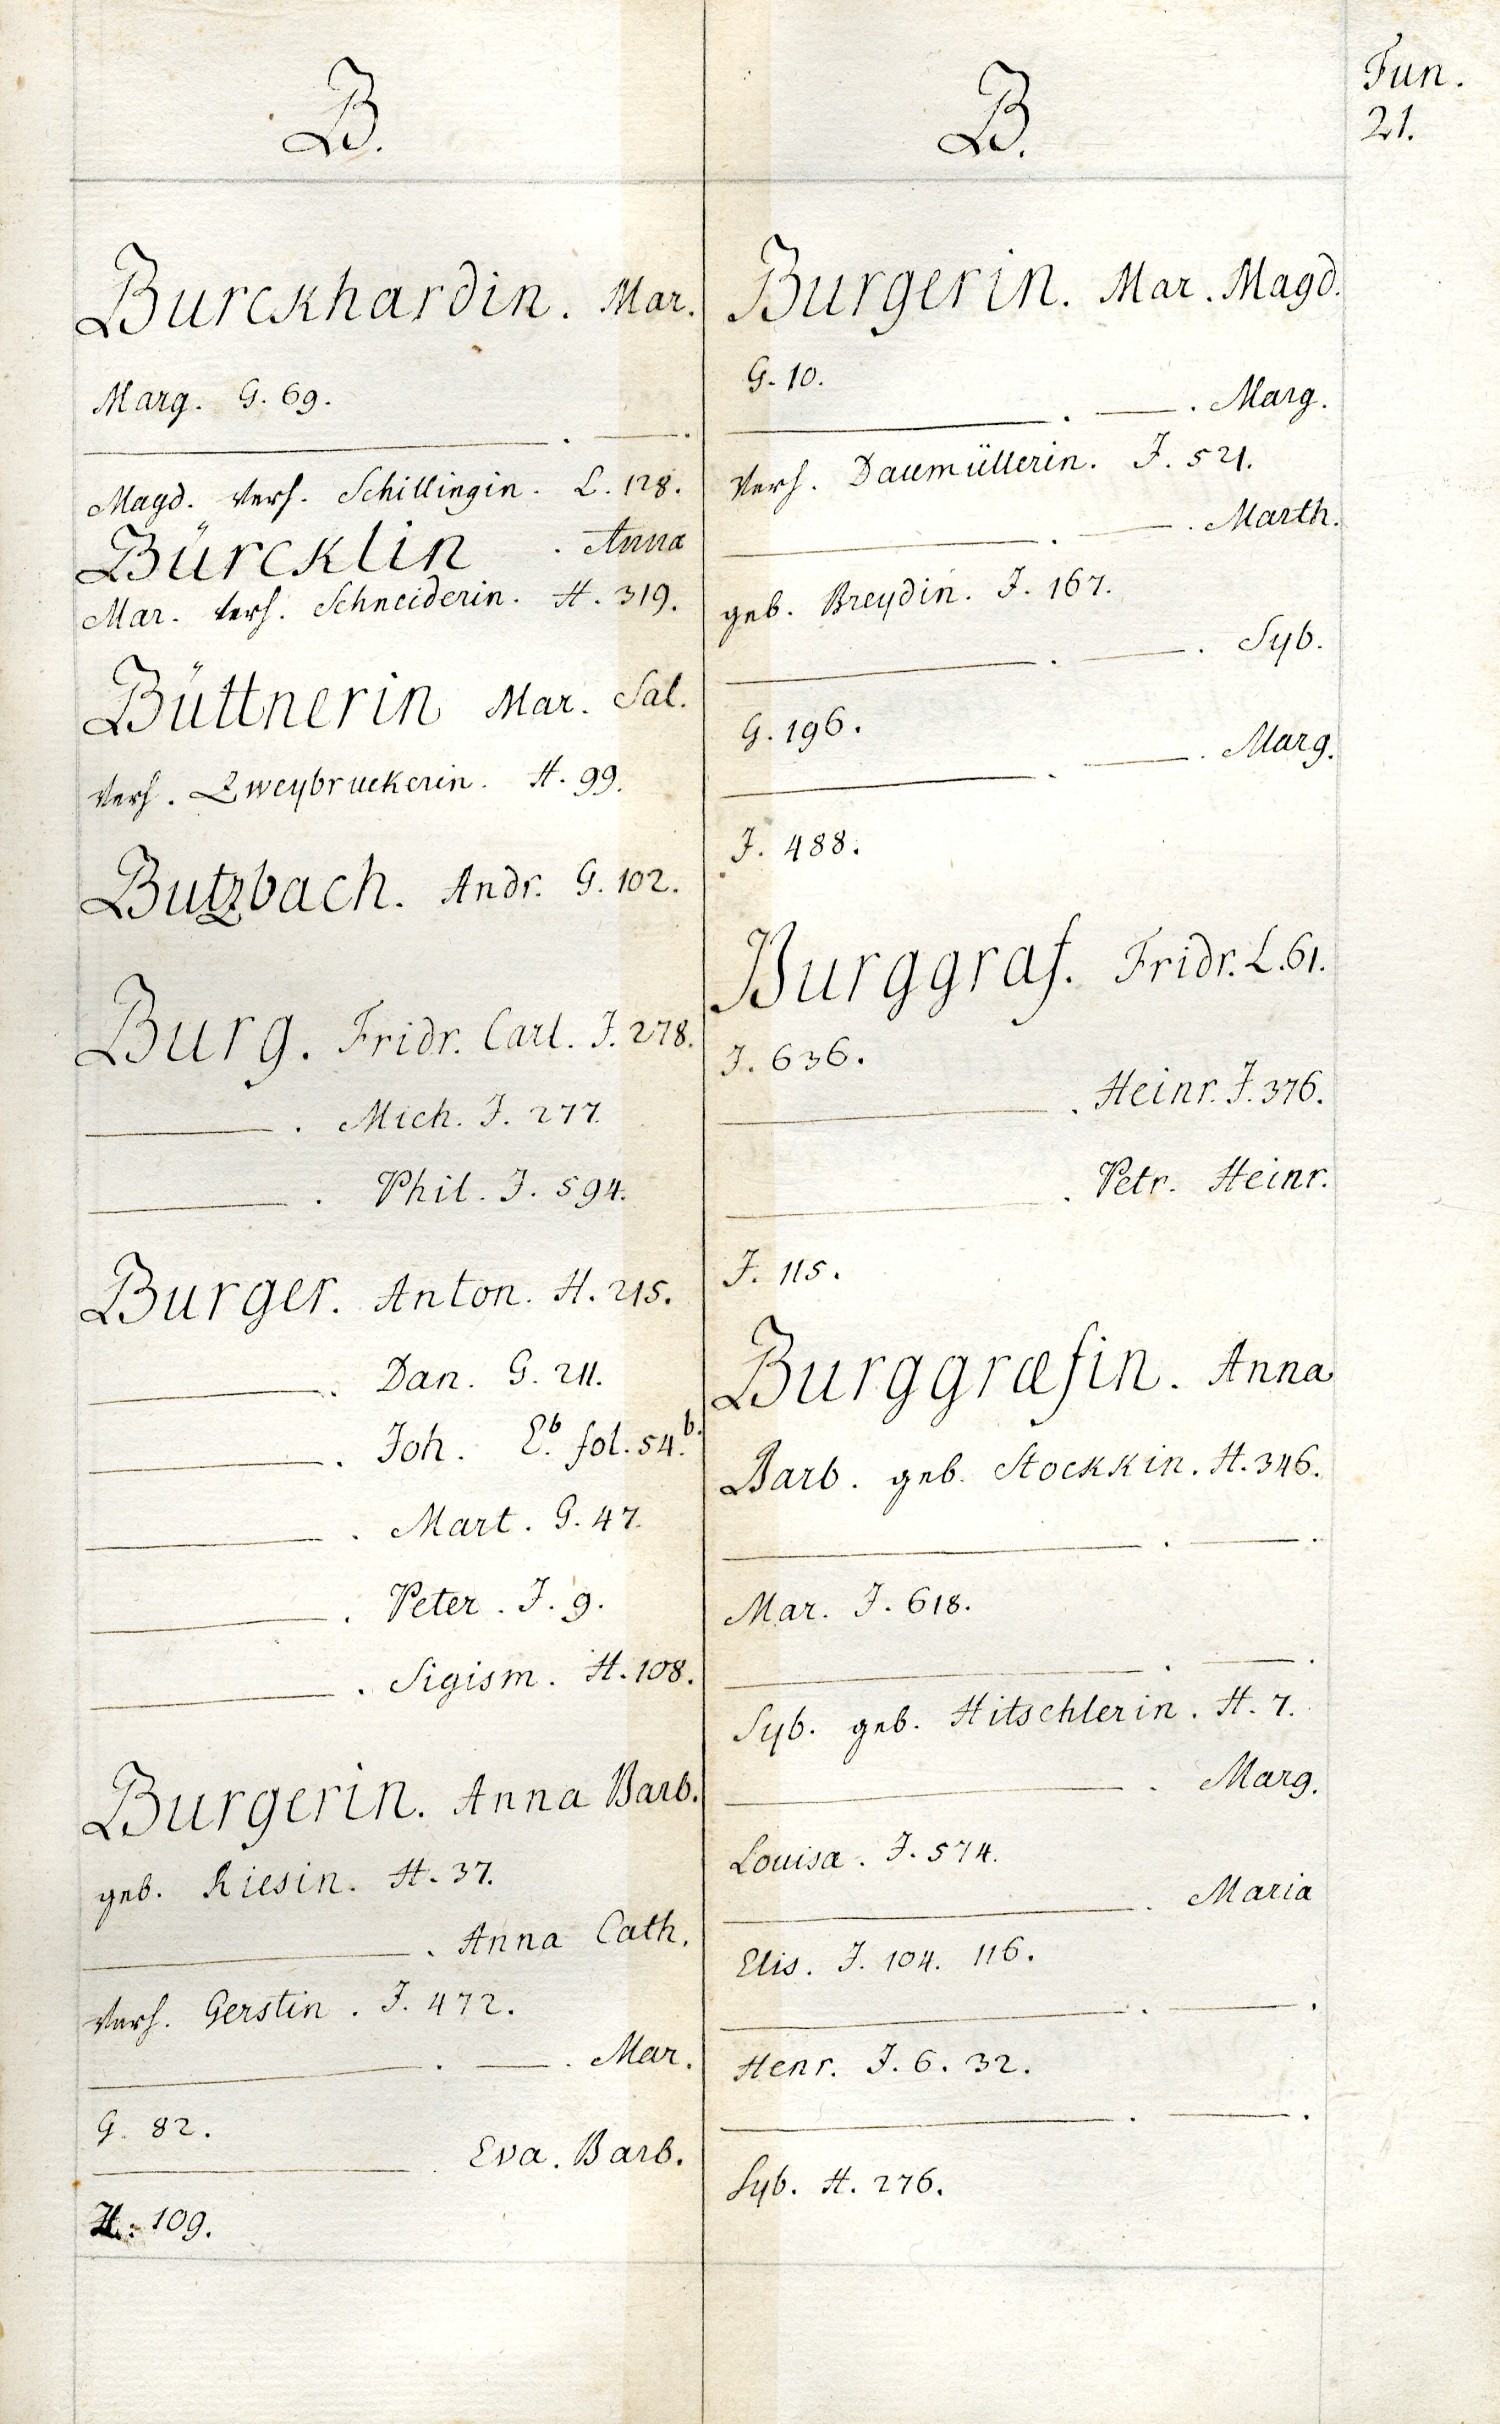 Fun.
21.
B.
Burckhardin. Mar.
Marg. G. 69.
———. ——.
Magd. verh. Schillingin. L. 128.
Bürcklin . Anna
Mar. verh. Schneiderin. H. 319.
Büttnerin Mar. Sal.
verh. Zweybruckerin. H. 99.
Butzbach. Andr. G. 102.
Burg. Fridr. Carl. J. 278.
———. Mich. J. 277.
———. Phil. J. 594.
Burger. Anton. H. 215.
———. Dan. G. 211.
———. Joh. E.b fol. 54.b.
———. Mart. G. 47.
———. Peter. J. 9.
———. Sigism. H. 108.
Burgerin. Anna Barb.
geb. Riesin. H. 37.
———. Anna Cath.
verh. Gerstin. J. 472.
———. ——. Mar.
G. 82.
———. Eva. Barb.
H. 109.
B.
Burgerin. Mar. Magd.
G. 10.
———. ——. Marg.
verh. Daumüllerin. J. 521.
———. ——. Marth.
geb. Breydin. J. 167.
———. ——. Syb.
G. 196.
———. ——. Marg.
J. 488.
Burggraf. Fridr. L. 61.
J. 636.
———. Heinr. J. 376.
———. Petr. Heinr.
J. 115.
Burggræfin. Anna
Barb. geb. Stockkin. H. 346.
———. ——.
Mar. J. 618.
———. ——.
Syb. geb. Hitschlerin. H. 7.
———. Marg.
Louisa. J. 574.
———. Maria
Elis. J. 104. 116.
———. ——.
Henr. J. 6. 32.
———. ——.
Syb. H. 276.